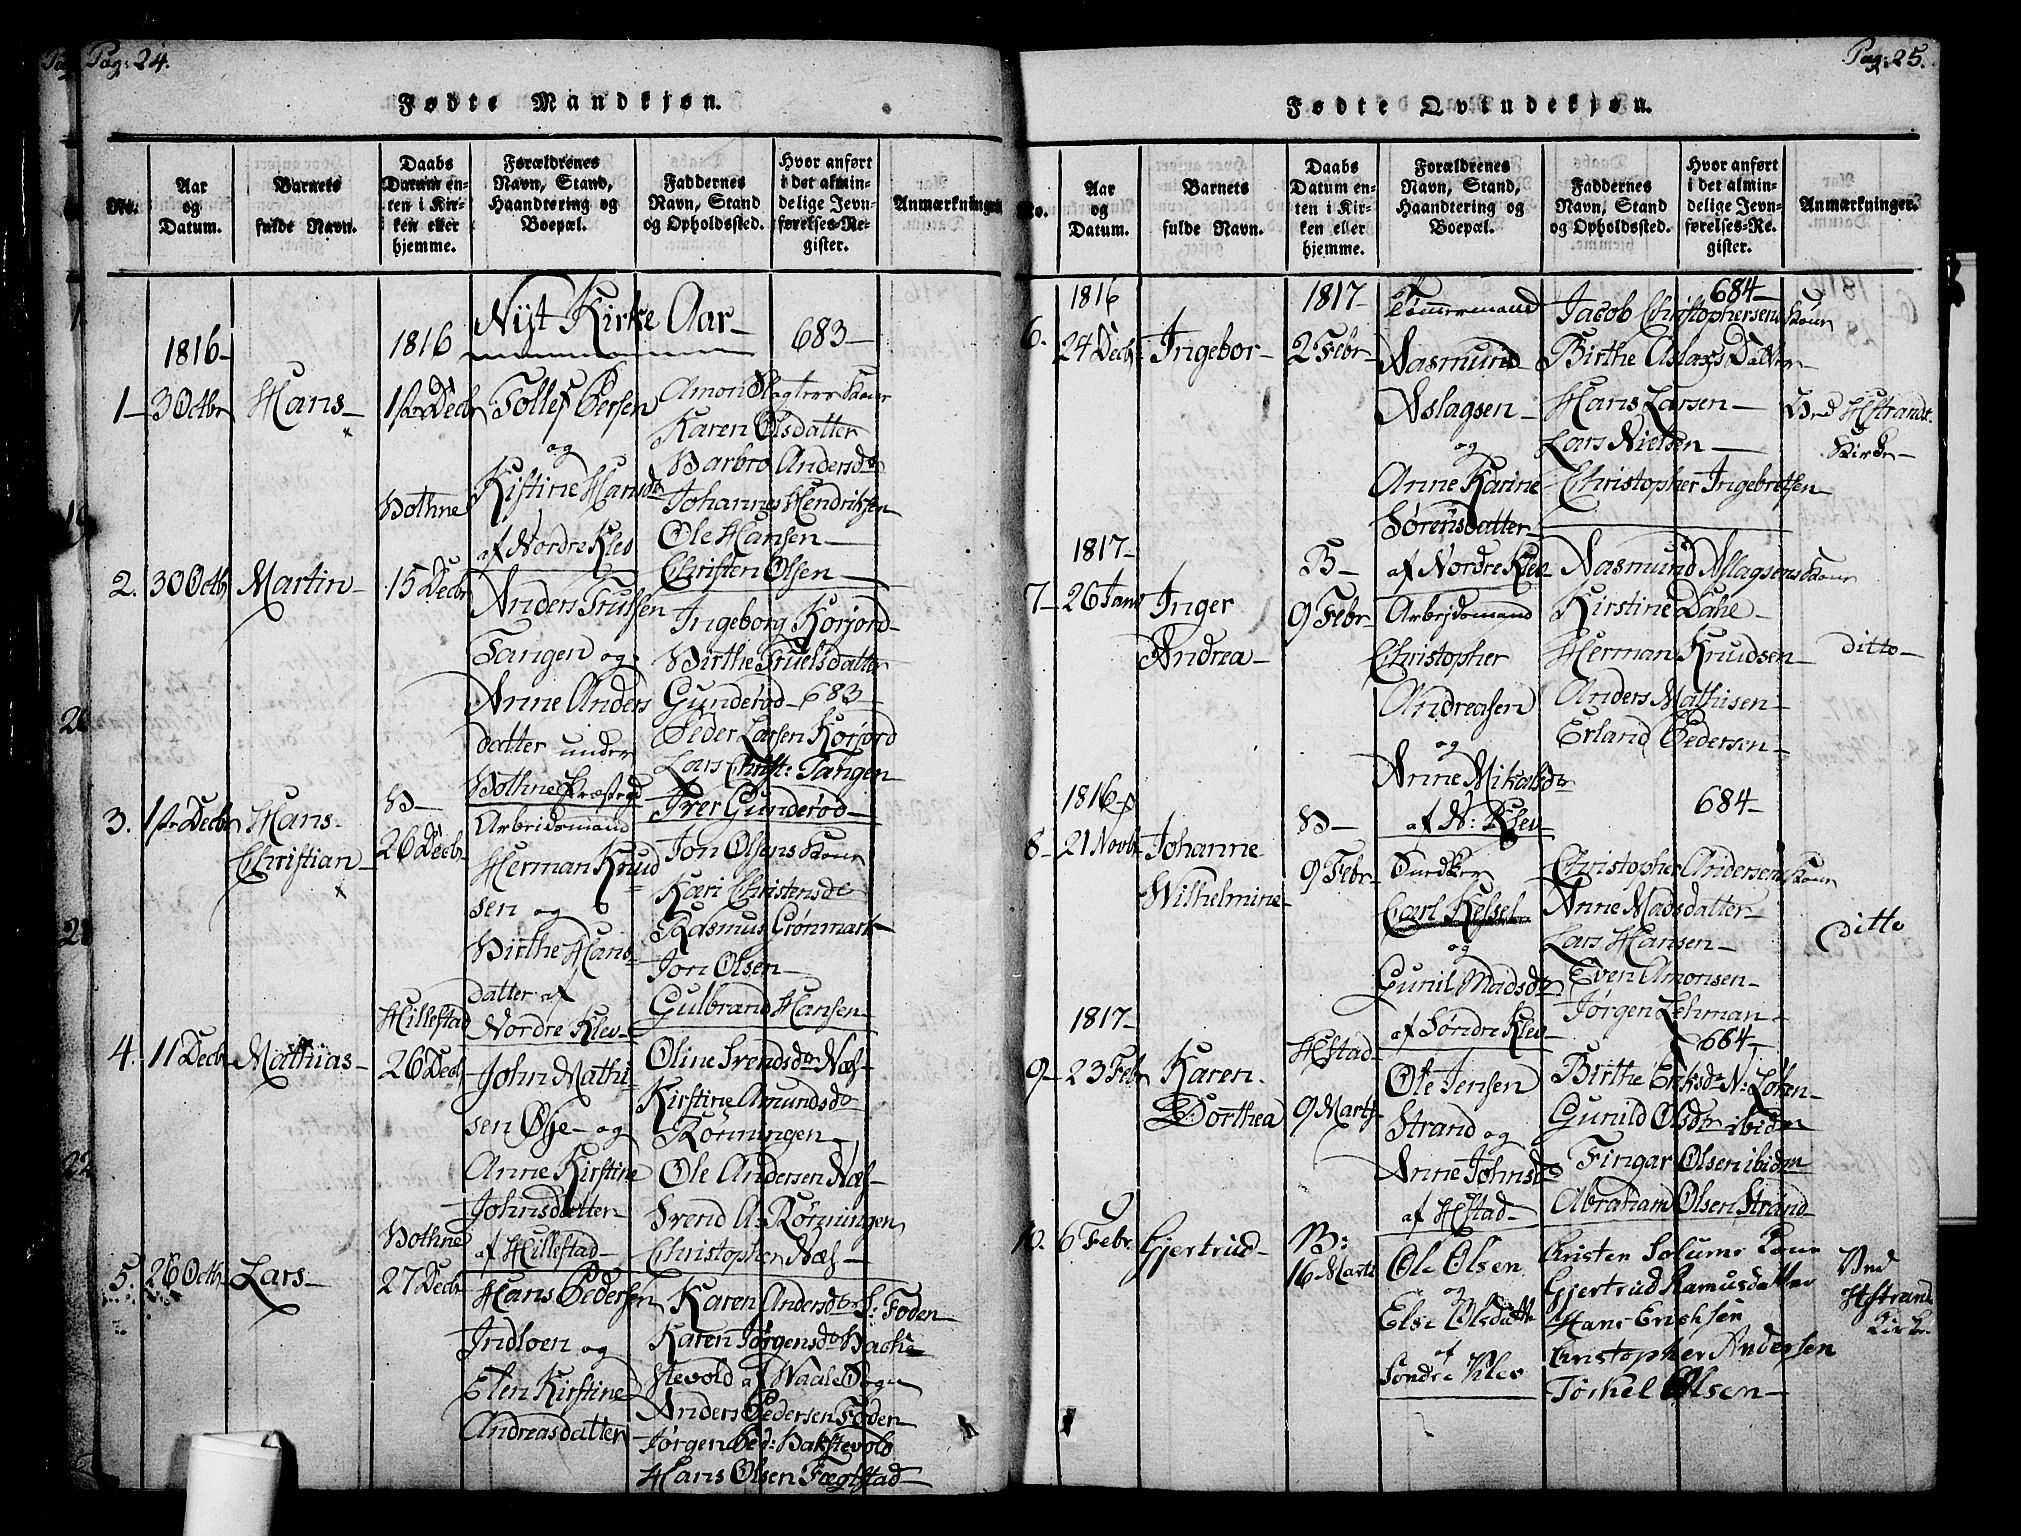 Pag: 24.
Fødte Mandkjøn.
No.
Aar og Datum.
Barnets fulde Navn.
Daabs Datum enten i Kirken eller hjemme.
Forældrenes Navn, Stand, Haandtering og Boepæl.
Faddernes Navn, Stand og Opholdssted.
Hvor anført i det almindelige Jevnførelses-Register.
Anmærkninger
Nyt Kirke Aar
1816
1816
683
1
3 Octbr
Hans
1ste Decbr
Bothne
Tollef Persen
og
Kistine Hansdr
af Nordre Klev
Amon Slagters Kone
Karen Olsdatter
Barbro Andersdr
Johannes Hendriksen
Ole Hansen
Christen Olsen
2.
30 Octb
Martin
15 Decbr
Anders Trulsen
Tangen og
Anne Anders
datter under
Bothne Præstgd
Ingeborg Korjord
Birthe Truelsdatter
Gunderød
683
Peder Larsen Korjord
Lars Christ: Tangen
Iver Gunderød
3.
1ste Decbr
Hans
Christian
B
26 Decbr
Hillestad
Arbeidsmand
Herman Knud
sen og
Birthe Hans
datter af
Nordre Klev
Jon Olsens Kone
Kari Christensdr
Rasmus Grönmark
Jon Olsen
Gulbrand Hansen
4.
11 Decbr
Mathias
26 Decb
Bothne
John Mathi
sen Øye og
Anne Kirstine
Johnsdatter
af Hillestad
Oline Svendsdr Næs
Kirstine Amundsdr
Rönningen
Ole Andersen Næs
Svend As Rönningen
Christopher Næs
5.
26 Octb
Lars
27 Decbr
Hans Pedersen
Indloen og
Elen Kirstine
Andreasdatter
Karen Andersdr S: Foden
Karen Jørgensdr Backe
stevold af Waale Sogn
Anders Pedersen Foden
Jørgen Ped: Bakstevold
Hans Olsen Fægstad
Pag: 25.
Fødte Qvindekjøn.
No.
Aar og Datum.
Barnets fulde Navn.
Daabs Datum enten i Kirken eller hjemme.
Forældrenes Navn, Stand, Haandtering og Boepæl.
Faddernes Navn, Stand og Opholdssted.
Hvor anført i det almindelige Jevnførelses-Register.
Anmærkninger.
6.
1816
24 Decbr
Ingebor
1817
2 Febr
Tømmermand
Aasmund
Aslagsen
og
Anne Karine
Sørensdatter
af Nordre Klev
684
Jacob Christophersens Kone
Birthe Aslags Datter
Hans Larsen
Lars Nielsen
Christopher Ingebretsen
Ved HStrandt
Kirke
7
1817
26 Janr
Inger
Andrea
B
9 Febr
Arbejdsmand
Christopher
Andreasen
og
Anne Mikalsdr
af N: Klev
Aasmund Aslagsens Kone
Kirstine Dahl
Herman Knudsen
Anders Mathisen
Erland Pedersen
ditto
8
1816
21 Novbr
Johanne
Wilhelmine
B
9 Febr
Snedker
Carl Kelsel
og
Gunil Madsdr
af Søndre Klev
684
Christopher Andersens Kone
Anne Madsdatter
Lars Hansen
Even Amonsen
Jørgen Lehman
ditto
9
1817
23 Feb
Karen
Dorthea
HStad
9 Marts
Ole Jensen
Strand og
Anne Johnsdr
af HStad
684
Birthe Eriksdr N: Løken
Gunild Olsdr ibidm
Fingar Olsen ibidm
Abraham Olsen Strand
10.
6 Febr.
Gjertrud
B:
16 Marts
Ole Olsen
og
Else Olsdatt
af
Søndre Klev
Christen Solums Kone
Gjertrud Ramusdatter
Hans Erichsen
Christopher Andersen
Torkel Olsen
Ved
HStrand
Kirke